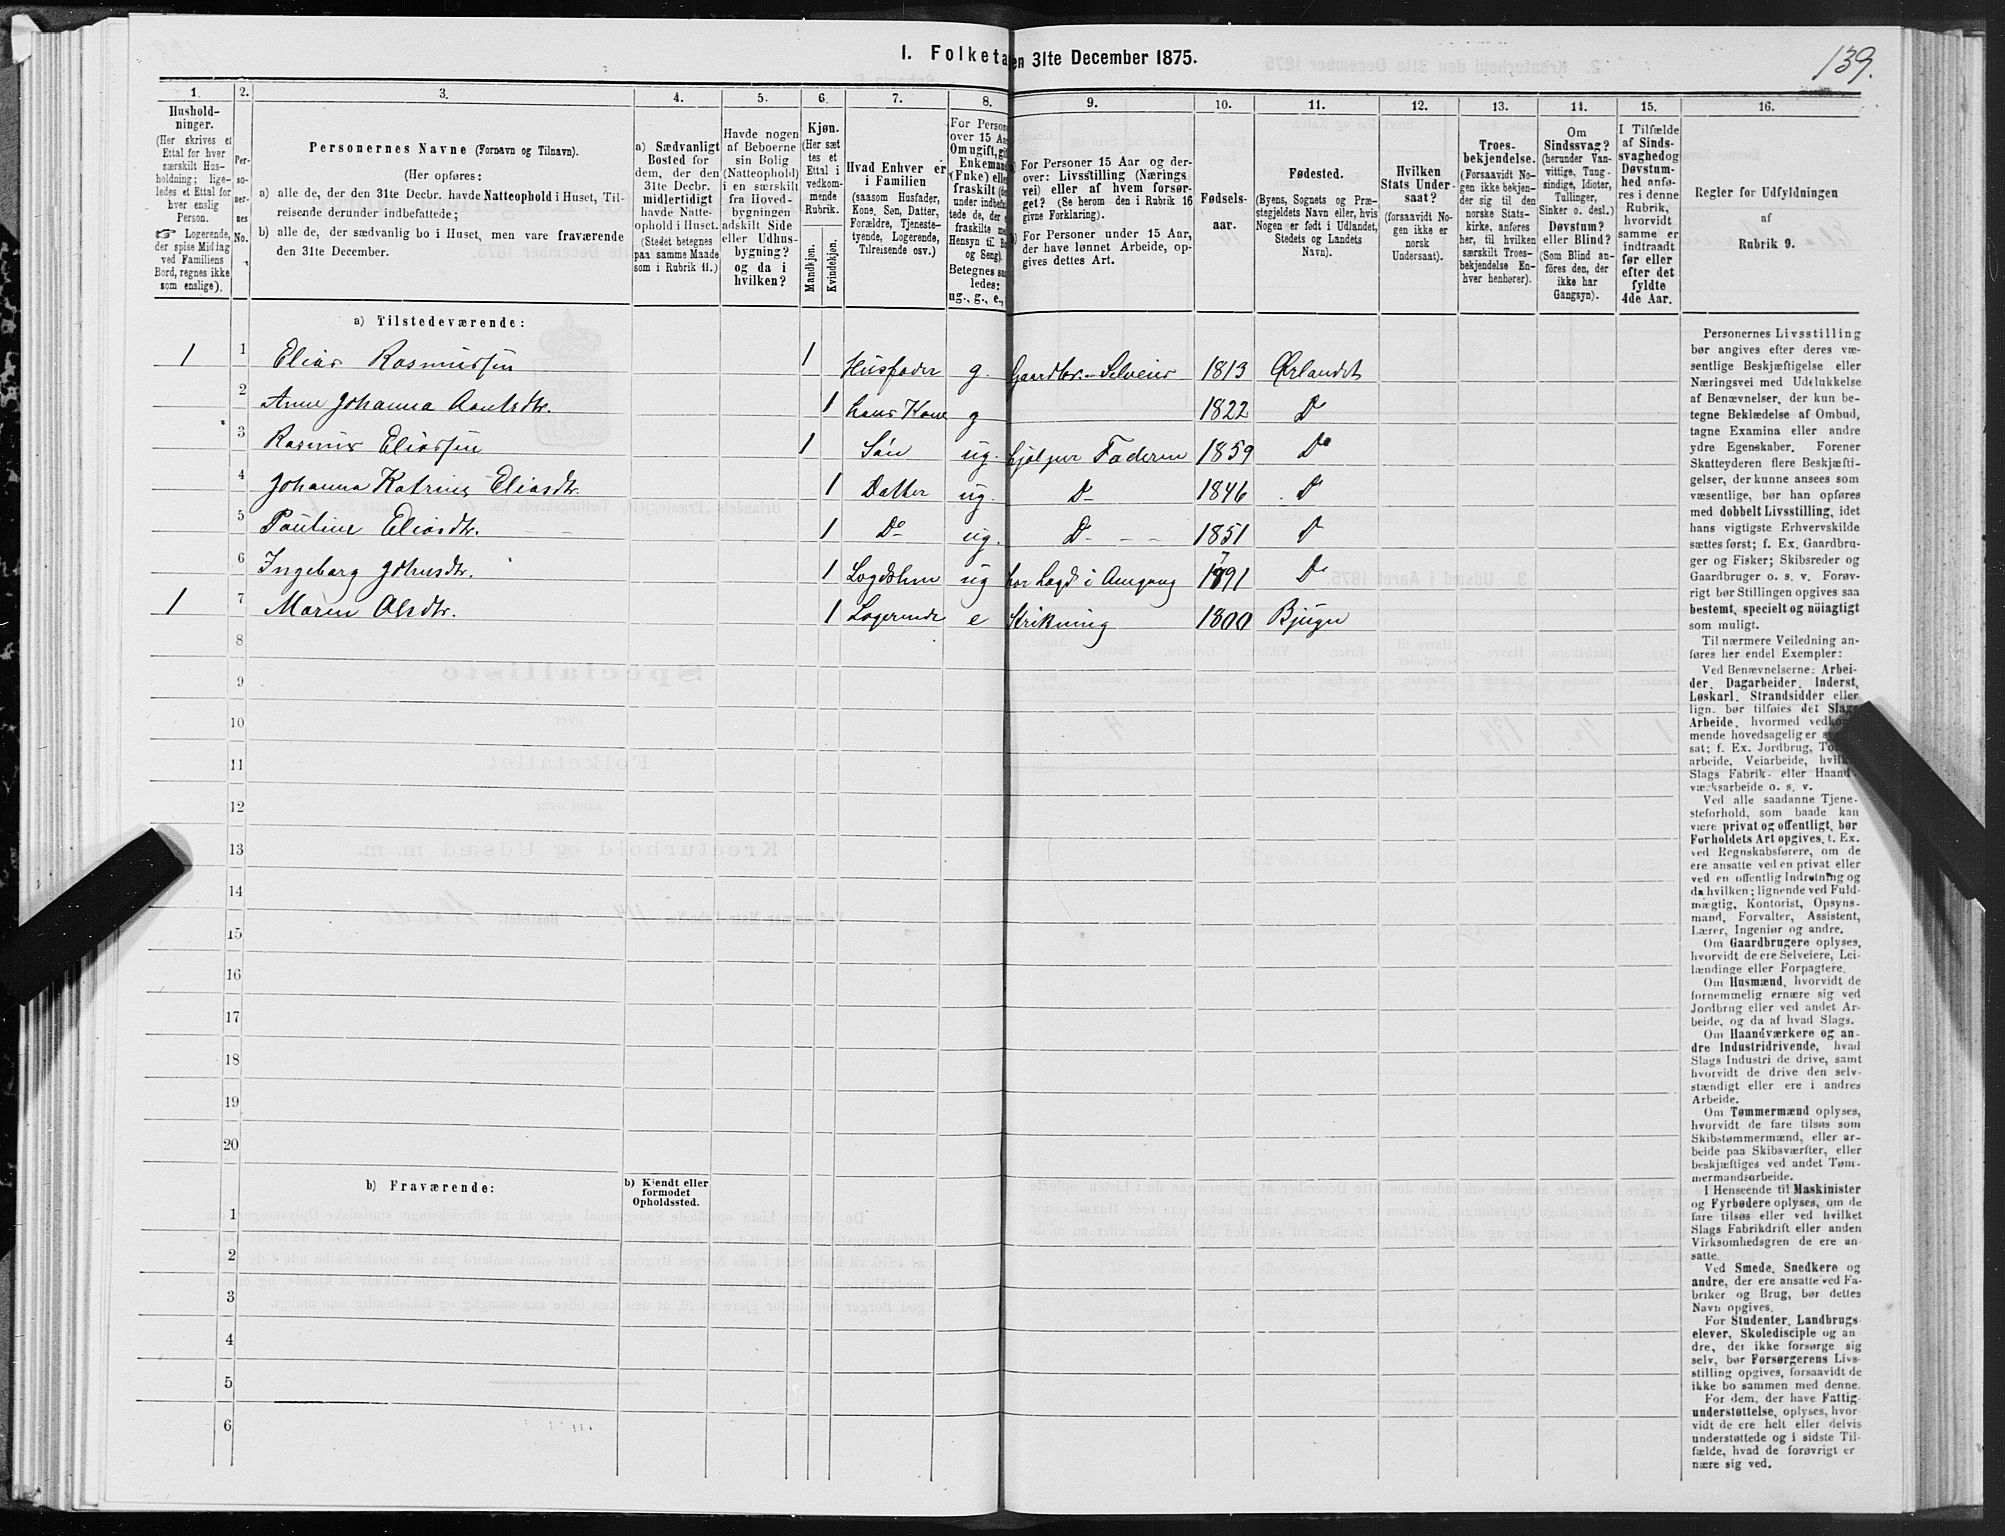 139.
I. Folketa en 31te December 1875.
1. 2. 3. 4. 5. 6. 7. 8. 9. 10. 11. 12. 13. 14. 15. 16.
Hushold-
ninger.
(Her skrives et
Ettal for hver
særskilt Hus-
holdning; lige-
ledes et Ettal for
hver enslig
Person.
☞ Logerende,
der spise Middag
ved Familiens
Bord, regnes ikke
som enslige).
Per-
so-
ner-
nes
No.
Personernes Navne (Fornavn og Tilnavn).
(Her opføres:
a) alle de, der den 31te Decbr. havde Natteophold i Huset, Til-
reisende derunder indbefattede;
b) alle de, der sædvanlig bo i Huset, men vare fraværende
den 31te December.
a) Sædvanligt
Bosted for
dem, der den
31te Decbr.
midlertidigt
havde Natte-
ophold i Huset.
(Stedet betegnes
paa samme Maade
som i Rubrik 11.)
Havde nogen
af Beboerne
sin Bolig
(Natteophold)
i en særskilt
fra Hoved-
bygningen
adskilt Side
eller Udhus-
bygning?
og da i
hvilken?
Kjøn.
(Her sæt
tes et
Ettal i
vedkom-
mende
Rubrik.
Mandkjøn.
Kvindekjøn.
Hvad Enhver er
i Familien
(saasom Husfader,
Kone, Søn, Datter,
Forældre, Tjeneste-
tyende, Logerende,
Tilreisende osv.)
For Person
over 15 Aa
Om ugift, gi
Enkemand
(Enke) elle
fraskilt (d
under indbef
tede de, der
fraskilte m
Hensyn til B
og Seng).
Betegnes s
ledes:
ug., g., e.,
a) For Personer 15 Aar og der-
over: Livsstilling (Nærings
vei) eller af hvem forsør-
get? (Se herom den i Rubrik 16
givne Forklaring).
b) For Personer under 15 Aar,
der have lønnet Arbeide, op-
gives dettes Art.
Fødsels-
aar.
Fødested.
(Byens, Sognets og Præ-
stegjeldets Navn eller, hvis
Nogen er født i Udlandet,
Stedets og Landets
Navn).
Hvilken
Stats Under-
saat?
(forsaavidt No-
gen ikke er
norsk
Undersaat).
Troes-
bekjendelse.
(Forsaavidt No-
gen ikke bekjen-
der sig til den
norske Stats-
kirke, anføres
her, til hvilken
særskilt Troes-
bekjendelse En-
hver henhører).
Om
Sindssvag?
(herunder Van-
vittige, Tung-
sindige, Idioter,
Tullinger,
Sinker o. desl.)
Døvstum?
eller Blind?
(Som Blind an-
føres den, der
ikke har
Gangsyn).
I Tilfælde
af Sinds-
svaghed og
Døvstum-
hed anfø-
res i denne
Rubrik,
hvorvidt
samme er
indtraadt
før eller
efter det
fyldte
4de Aar.
Regler for Udfyldningen
af
Rubrik 9.
a) Tilstedeværende:
1 1 Elias Rasmussen 1 Husfader g. Gaardbr. Selveier 1813 Ørlandet
2 Anne Johanna Arntsdtr. 1 hans Kone g 1822 Do
3 Rasmus Eliassen 1 Søn ug. hjelper Faderen 1859 Do
4 Johanna Katrine Eliasdtr. 1 Datter ug. Do 1846 Do
5 Pauline Eliasdtr. 1 Do ug. Do 1851 Do
6 Ingeborg Johnsdtr. 1 Lægdslem ug har Lægd i Omgang 1791 Do
1 7 Maren Olsdtr. 1 Logerende e Strikning 1800 Bjugn
8
9
10
11
12
13
14
15
16
17
18
19
20
b) Fraværende:
b) Kjendt eller
formodet
Opholdssted.
1
2
3
4
5
6
Personernes Livsstilling
bør angives efter deres væ-
sentlige Beskjæftigelse eller
Næringsvei med Udelukkelse
af Benævnelser, der kun be-
tegne Beklædelse af Ombud,
tagne Examina eller andre
ydre Egenskaber. Forener
Skatteyderen flere Beskjæfti-
gelser, der kunne ansees som
væsentlige, bør han opføres
med dobbelt Livsstilling, idet
hans vigtigste Erhvervskilde
sættes først; f. Ex. Gaardbru-
ger og Fisker; Skibsreder og
Gaardbruger o. s. v. Forøv-
rigt bør Stillingen opgives saa
bestemt, specielt og nöiagtigt
som muligt.
Til nærmere Veiledning an-
føres her endel Exempler:
Ved Benævnelserne: Arbei-
der, Dagarbeider, Inderst,
Løskarl, Strandsidder eller
lign. bør tilføies det Slags
Arbeide, hvormed vedkom-
mende hovedsagelig er
sat; f. Ex. Jordbrug,
arbeide, Veiarbeide,
Slags Fabrik- eller Haand-
værksarbeide o. s. v.
Ved alle saadanne Tjene-
steforhold, som baade kan
være privat og offentligt, bør
Forholdets Art opgives, t. Ex.
ved Regnskabsførere, om de
ere ansatte ved en privat eller
ved en offentlig Indretning og
da hvilken; lignende ved Fuld-
mægtig, Kontorist, Opsyns-
mand, Forvalter, Assistent,
Lærer, Ingeniør og andre.
Om Gaardbrugere oplyses,
hvorvidt de ere Selveiere, Lei-
lændinge eller Forpagtere.
Om Husmænd, hvorvidt de
fornemmelig ernære sig ved
Jordbrug eller ved andet Ar-
beide, og da af hvad Slags.
Om Haandværkere og an-
dre Industridrivende, hvad
Slags Industri de drive, samt
hvorvidt de drive den selv-
stændigt eller ere i andres
Arbeide.
Om Tømmermænd oplyses,
hvorvidt de fare tilsøs som
Skibstømmermænd, eller ar-
beide paa Skibsværfter, eller
beskjæftiges ved andet Tøm-
mermandsarbeide.
I Henseende til Maskinister
og Fyrbødere oplyses, om de
fare tilsøs eller ved hvilket
Slags Fabrikdrift eller anden
Virksomhedsgren de ere an-
satte.
Ved Smede, Snedkere og
andre, der ere ansatte ved Fa-
briker og Brug, bør dettes
Navn opgives.
For Studenter, Landbrugs-
elever, Skoledisciple og an-
dre, der ikke forsørge sig
selv, bør Forsørgerens Livs-
stilling opgives, forsaavidt de
ikke bo sammen med denne.
For dem, der have Fattig-
understøttelse, oplyses, hvor-
vidt de ere helt eller delvis
understøttede og i sidste Til-
fælde, hvad de forøvrigt er
nære sig ved.